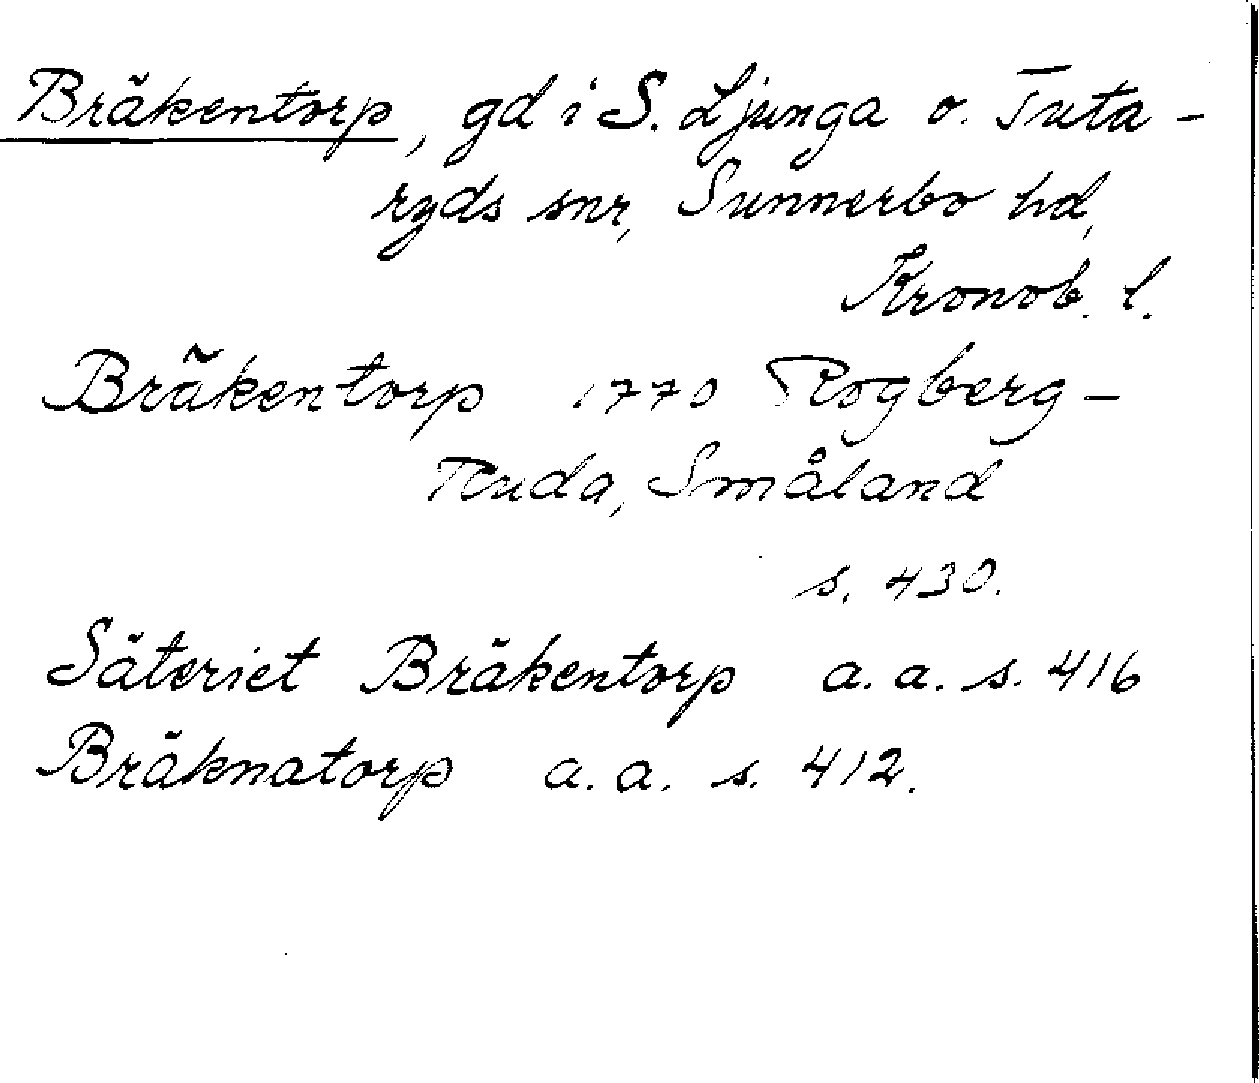 Bräkentorp, gd i S. Ljunga o. Tuta-
ryds snr, Sunnerbo hd,
Kronob. l.
Bräkentorp 1770 Rogberg-
Ruda, Småland
s. 430.
Säteriet Bräkentorp a. a. s. 416
Bräknatorp a. a. s. 412.